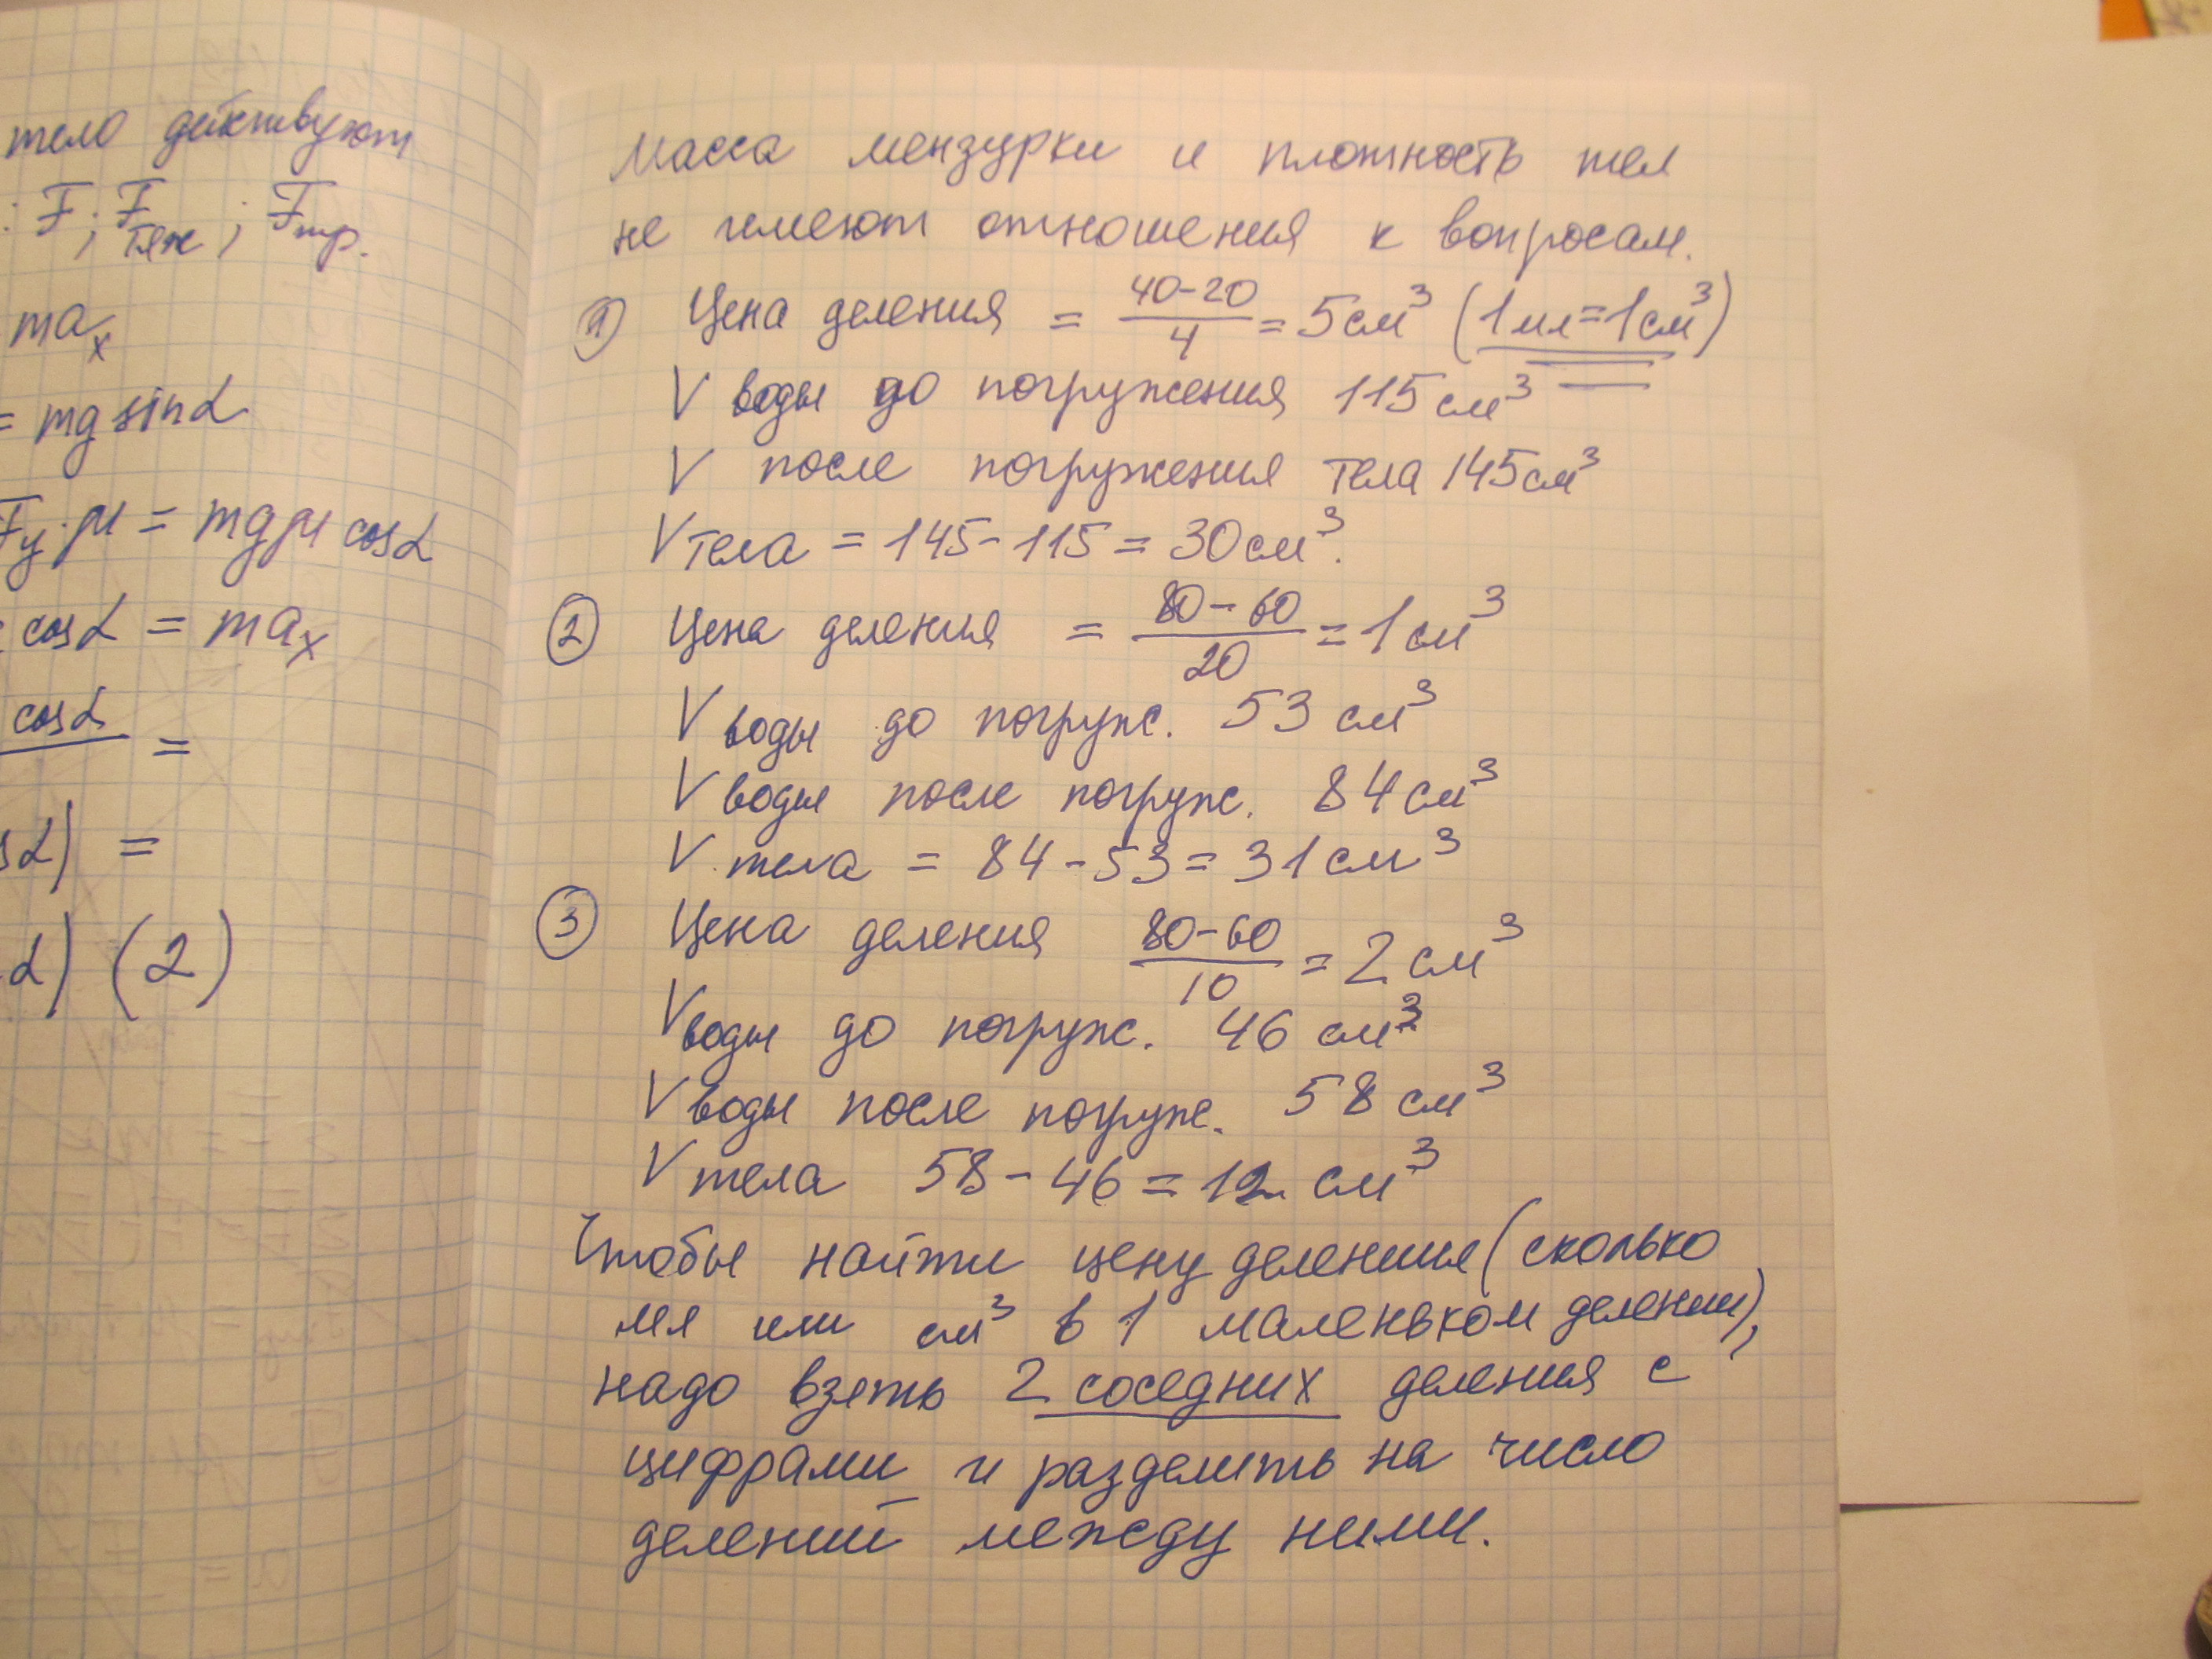 тело действуют
: F; Fтяж; Fтр.
maₓ
= mg sinα
Fy·μ = mgμ cosα
cosα = maₓ
cosα =
sα) =
α) (2)
Масса мензурки и плотность тел
не имеют отношения к вопросам.
1) Цена деления = (40-20)/4 = 5см³ (1мл=1см³)
V воды до погружения 115см³
V после погружения тела 145см³
Vтела = 145-115 = 30см³.
2 Цена деления = (80-60)/20 = 1см³
V воды до погруж. 53 см³
V воды после погруж. 84см³
V тела = 84-53=31см³
3 Цена деления (80-60)/10 = 2см³
V воды до погруж. 46 см³
V воды после погруж. 58 см³
V тела 58-46=12 см³
Чтобы найти цену деления (сколько
мл или см³ в 1 маленьком делении),
надо взять 2 соседних деления с
цифрами и разделить на число
делений между ними.